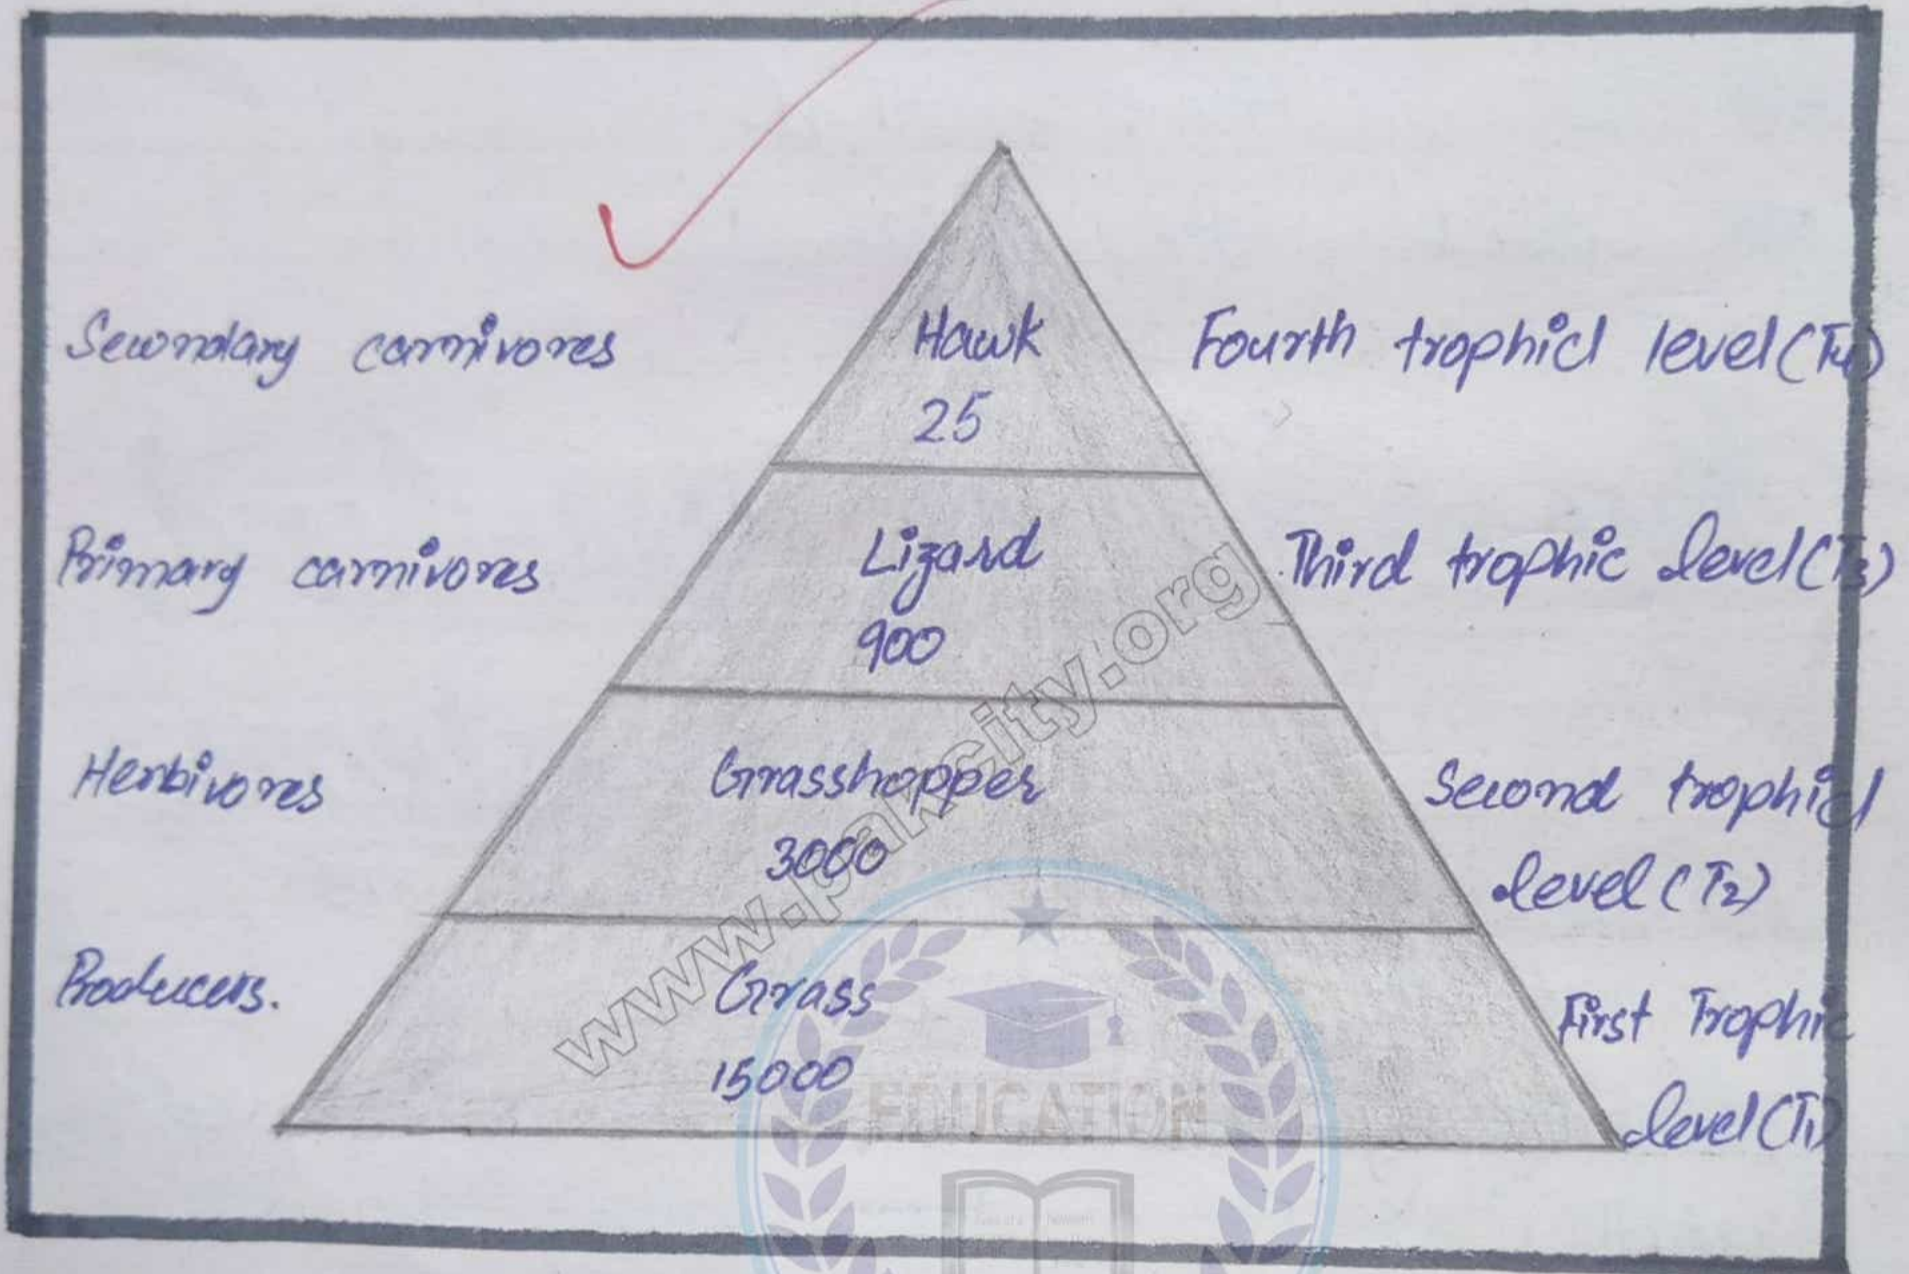 Secondary carnivores Hawk Fourth trophicl level (T4)
25
Primary carnivores Lizard Third trophic level (T3)
900
Herbivores Grasshopper Second trophicl
3000 level (T2)
Producers. Grass First Trophic
15000 level (T1)
www.pakcity.org
EDUCATION